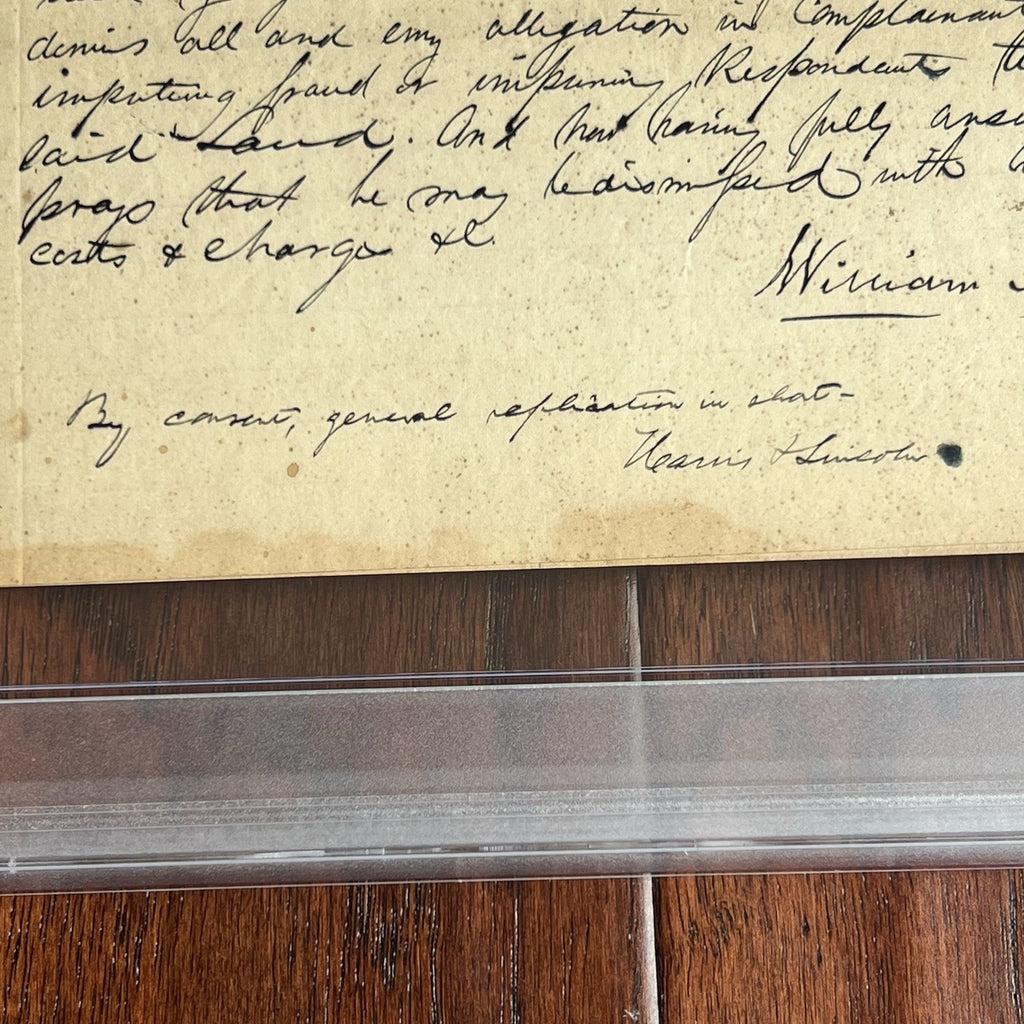 denies all and evry allegation in Complainant
imputing fraud or impuning Respondents
said Land. And now having fully
prays that he may be dismissed with
costs & charges &c.
William
By consent, general replication in short—
Harris & Lincoln